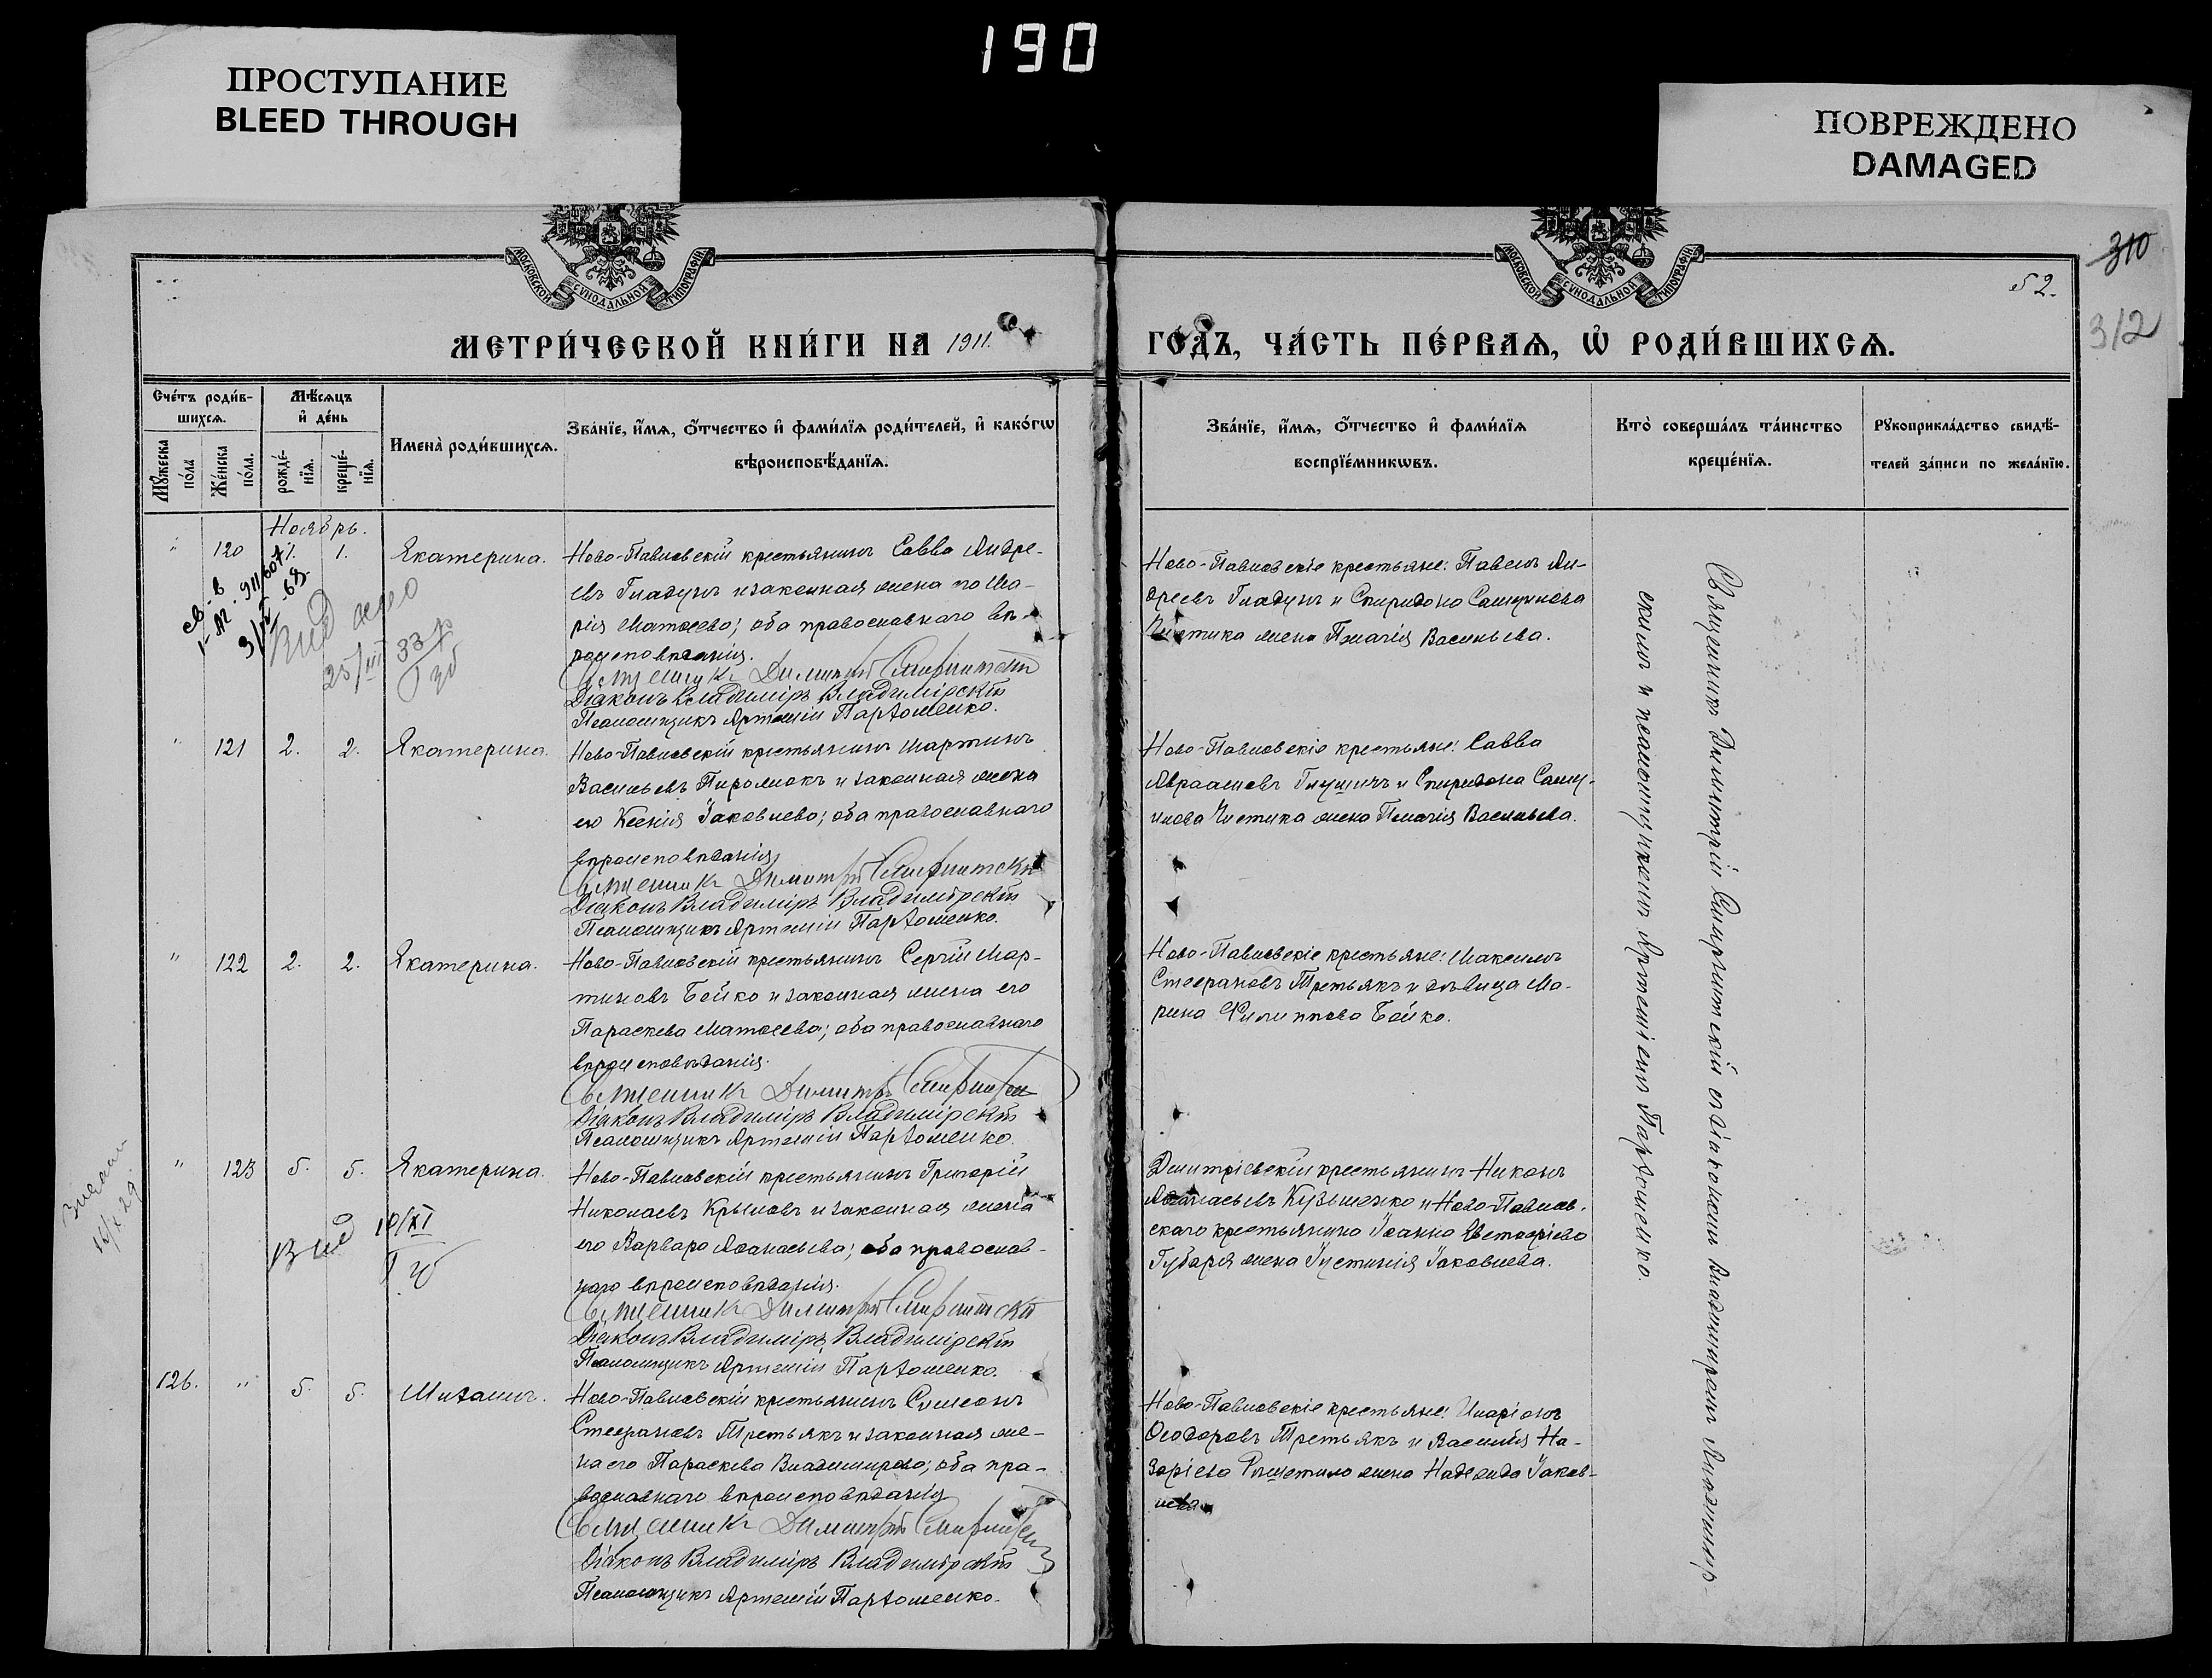 190
ПРОСТУПАНИЕ
BLEED THROUGH
ПОВРЕЖДЕНО
DAMAGED
МОСКОВСКОЙ СѴНОДАЛЬНОЙ ТИПОГРАФІИ
МОСКОВСКОЙ СѴНОДАЛЬНОЙ ТИПОГРАФІИ
310
52.
312
МЕТРИ́ЧЕСКОЙ КНИ́ГИ НА 1911.
ГО́ДЪ, ЧА́СТЬ ПЕ́РВАѦ, Ѡ҆ РОДИ́ВШИХСѦ.
Сче́тъ роди́в-
шихсѧ.
Мꙋ́жеска
по́ла
Же́нска
по́ла.
Мѣ́сѧцъ
и҆ де́нь
рожде́-
нїѧ.
креще́-
нїѧ.
Имена̀ роди́вшихсѧ.
Зва́нїе, и҆́мѧ, ѻ҆́тчество и҆ фами́лїѧ роди́телей, и҆ како́гѡ
вѣроисповѣ́данїѧ.
Зва́нїе, и҆́мѧ, ѻ҆́тчество и҆ фами́лїѧ
воспрїе́мникѡвъ.
Кто̀ соверша́лъ та́инство
креще́нїѧ.
Рꙋкоприкла́дство свидѣ́-
телей за́писи по жела́нїю.
Ноябрь.
" 120 1. 1. Екатерина.
Ново-Павловскій крестьянинъ Савва Андре-
евъ Гладунъ и законная жена его Ма-
рія Матѳеева; оба православнаго вѣ-
роисповѣданія.
Священникъ Димитрій
Діаконъ Владиміръ Владимірскій
Псаломщикъ Артемій Пархоменко.
Ново-Павловскіе крестьяне: Павелъ Ан-
дреевъ Гладунъ и Спиридона Самуилова
Чистика жена Пелагія Васильева.
Вид
25/III 33 р
" 121 2. 2. Екатерина.
Ново-Павловскій крестьянинъ Мартинъ
Васильевъ и законная жена
его Ксенія Іаковлева; оба православнаго
вѣроисповѣданія.
Священникъ Димитрій
Діаконъ Владиміръ Владимірскій
Псаломщикъ Артемій Пархоменко.
Ново-Павловскіе крестьяне: Савва
Авраамовъ и Спиридона Саму-
илова Чистика жена Пелагія Васильева.
" 122 2. 2. Екатерина.
Ново-Павловскій крестьянинъ Сергій Мар-
тиновъ Бойко и законная жена его
Параскева Матѳеева; оба православнаго
вѣроисповѣданія.
Священникъ Димитрій
Діаконъ Владиміръ Владимірскій
Псаломщикъ Артемій Пархоменко.
Ново-Павловскіе крестьяне: Максимъ
Стефановъ Третьякъ и дѣвица Ма-
рина Филиппова Бойко.
" 123 5. 5. Екатерина.
Ново-Павловскій крестьянинъ Григорій
Николаевъ Крыловъ и законная жена
его Варвара Аѳанасьева; оба православ-
наго вѣроисповѣданія.
Священникъ Димитрій
Діаконъ Владиміръ Владимірскій
Псаломщикъ Артемій Пархоменко.
Дмитріевскій крестьянинъ Никонъ
Аѳанасьевъ Кузьменко и Ново-Павлов-
скаго крестьянина Іоанна Евстафіева
Губаря жена Іустинія Іаковлева.
Вид 10/XI
126. " 5. 5. Михаилъ.
Ново-Павловскій крестьянинъ Симеонъ
Стефановъ Третьякъ и законная же-
на его Параскева Владимирова; оба пра-
вославнаго вѣроисповѣданія
Священникъ Димитрій
Діаконъ Владиміръ Владимірскій
Псаломщикъ Артемій Пархоменко.
Ново-Павловскіе крестьяне: Иларіонъ
Ѳеодоровъ Третьякъ и Василія На-
заріева Решетило жена Надежда Іаков-
лева.
Священникъ Димитрій съ діакономъ Владимиромъ Владимир-
скимъ и псаломщикомъ Артеміемъ Пархоменко.